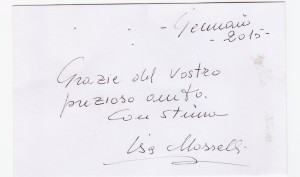 - Gennaio
- 2015 -
Grazie del vostro
prezioso aiuto.
Con stima
Lisa Mosselli